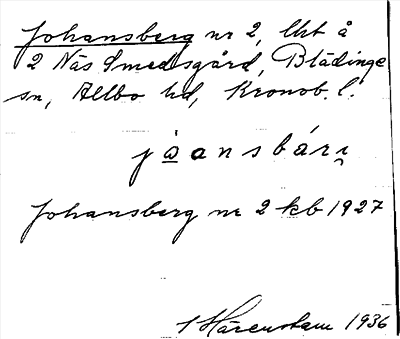 Johansberg nr 2, lht å
2 Näs Smedsgård, Blädinge
sn, Allbo hd, Kronob. l.
jòansbárɪ̯
Johansberg nr 2 kb 1927
I Härenstam 1936